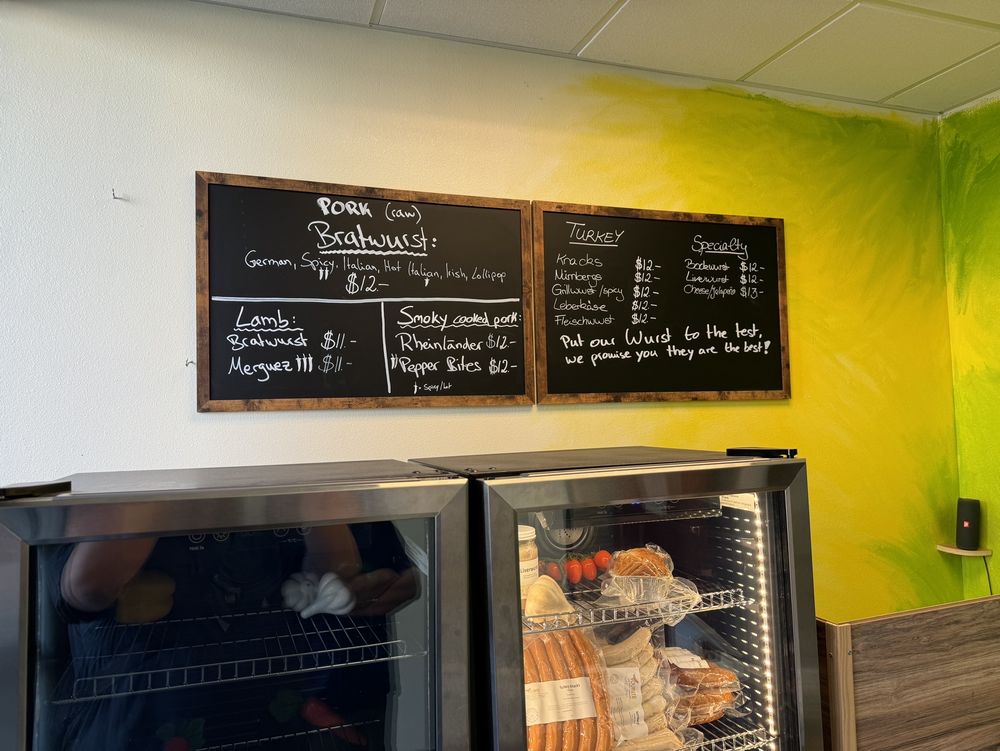 PORK (raw)
Bratwurst:
German, Spicy, Italian, Hot Italian, Irish, Lollipop
$12.-
Lamb:
Bratwurst $11.-
Merguez $11.-
Smoky cooked pork:
Rheinländer $12.-
Pepper Bites $12.-
= Spicy/hot
TURKEY
Knacks $12.-
Nürnbergs $12.-
Grillwurst/spicy $12.-
Leberkäse $12.-
Fleischwurst $12.-
Specialty
Bockwurst $12.-
Liverwurst $12.-
Cheese/Jalapeño $13.-
Put our Wurst to the test,
we promise you they are the best!
Liverwurst
Turkey Knacks